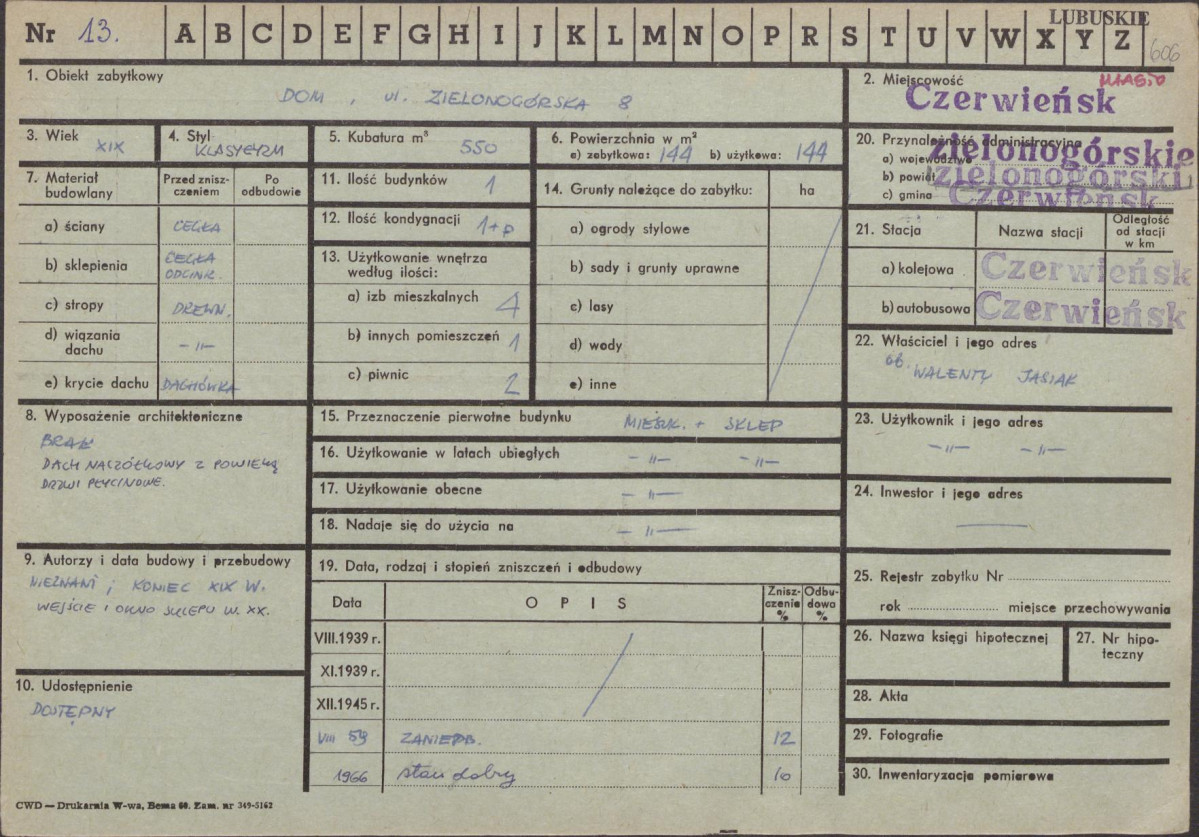 Nr 13. A B C D E F G H I J K L M N O P R S T U V W X Y Z
LUBUSKIE
606
1. Obiekt zabytkowy
DOM, ul. ZIELONOGÓRSKA 8
2. Miejscowość
MIASTO
Czerwieńsk
3. Wiek
XIX
4. Styl
KLASYCYZM
5. Kubatura m³
550
6. Powierzchnia w m²
a) zabytkowa: 144 b) użytkowa: 144
20. Przynależność administracyjna
a) województwo zielonogórskie
b) powiat zielonogórski
c) gmina Czerwieńsk
7. Materiał budowlany
Przed zniszczeniem
Po odbudowie
a) ściany CEGŁA
b) sklepienia CEGŁA
ODCINK.
c) stropy DREWN.
d) wiązania dachu -"-
e) krycie dachu DACHÓWKA
11. Ilość budynków 1
12. Ilość kondygnacji 1+p
13. Użytkowanie wnętrza
według ilości:
a) izb mieszkalnych 4
b) innych pomieszczeń 1
c) piwnic 2
14. Grunty należące do zabytku: ha
a) ogrody stylowe
b) sady i grunty uprawne
c) lasy
d) wody
e) inne
21. Stacja
Nazwa stacji
Odległość od stacji w km
a) kolejowa Czerwieńsk
b) autobusowa Czerwieńsk
22. Właściciel i jego adres
ob. WALENTY JASIAK
8. Wyposażenie architektoniczne
BRAK
DACH NACZÓŁKOWY Z POWIEKĄ
DRZWI PŁYCINOWE.
15. Przeznaczenie pierwotne budynku MIESZK. + SKLEP
16. Użytkowanie w latach ubiegłych -"- -"-
17. Użytkowanie obecne -"-
18. Nadaje się do użycia na -"-
23. Użytkownik i jego adres
-"- -"-
24. Inwestor i jego adres
9. Autorzy i data budowy i przebudowy
NIEZNANI; KONIEC XIX W.
WEJŚCIE I OKNO SKLEPU W. XX.
19. Data, rodzaj i stopień zniszczeń i odbudowy
Data
OPIS
Zniszczenie %
Odbudowa %
VIII.1939 r.
XI.1939 r.
XII.1945 r.
VIII 59 ZANIEDB. 12
1966 stan dobry 10
25. Rejestr zabytku Nr
rok miejsce przechowywania
26. Nazwa księgi hipotecznej
27. Nr hipoteczny
10. Udostępnienie
DOSTĘPNY
28. Akta
29. Fotografie
30. Inwentaryzacja pomiarowa
CWD — Drukarnia W-wa, Bema 60. Zam. nr 349-5162